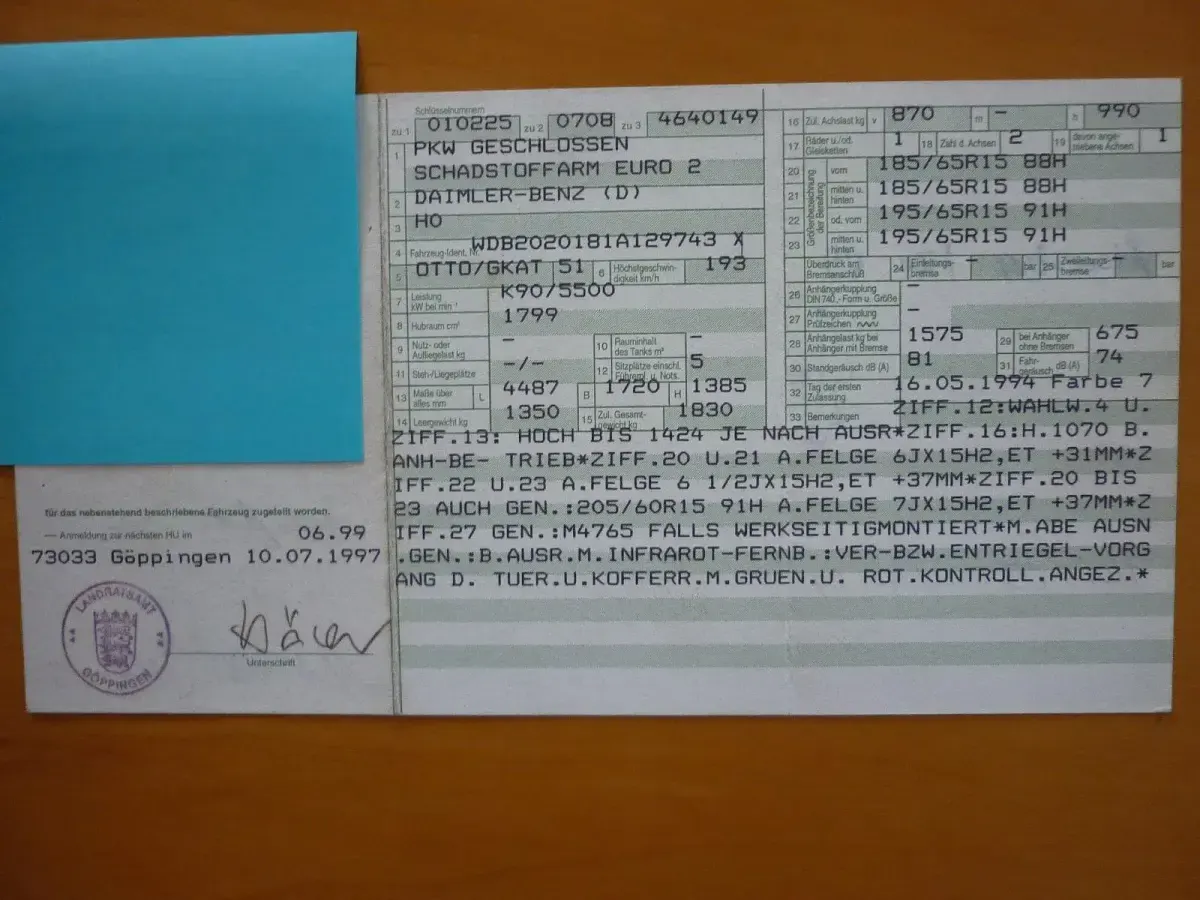 für das nebenstehend beschriebene Fahrzeug zugeteilt worden.
— Anmeldung zur nächsten HU im 06.99
73033 Göppingen 10.07.1997
LANDRATSAMT
GÖPPINGEN
Unterschrift
Schlüsselnummern
zu 1 010225 zu 2 0708 zu 3 4640149
1 PKW GESCHLOSSEN
SCHADSTOFFARM EURO 2
2 DAIMLER-BENZ (D)
3 HO
4 Fahrzeug-Ident. Nr. WDB2020181A129743 X
5 OTTO/GKAT 51 6 Höchstgeschwindigkeit km/h 193
7 Leistung kW bei min⁻¹ K90/5500
8 Hubraum cm³ 1799
9 Nutz- oder Aufliegelast kg – 10 Rauminhalt des Tanks m³ –
11 Steh-/Liegeplätze –/– 12 Sitzplätze einschl. Führerpl. u. Nots. 5
13 Maße über alles mm L 4487 B 1720 H 1385
14 Leergewicht kg 1350 15 Zul. Gesamtgewicht kg 1830
16 Zul. Achslast kg v 870 m – h 990
17 Räder u./od. Gleisketten 1 18 Zahl d. Achsen 2 19 davon angetriebene Achsen 1
Größenbezeichnung der Bereifung
20 vorn 185/65R15 88H
21 mitten u. hinten 185/65R15 88H
22 od. vorn 195/65R15 91H
23 mitten u. hinten 195/65R15 91H
Überdruck am Bremsanschluß 24 Einleitungsbremse – bar 25 Zweileitungsbremse – bar
26 Anhängerkupplung DIN 740.-Form u. Größe –
27 Anhängerkupplung Prüfzeichen –
28 Anhängelast kg bei Anhänger mit Bremse 1575 29 bei Anhänger ohne Bremsen 675
30 Standgeräusch dB (A) 81 31 Fahrgeräusch dB (A) 74
32 Tag der ersten Zulassung 16.05.1994 Farbe 7
33 Bemerkungen ZIFF.12:WAHLW.4 U.
ZIFF.13: HOCH BIS 1424 JE NACH AUSR*ZIFF.16:H.1070 B.
ANH-BE- TRIEB*ZIFF.20 U.21 A.FELGE 6JX15H2,ET +31MM*Z
IFF.22 U.23 A.FELGE 6 1/2JX15H2,ET +37MM*ZIFF.20 BIS
23 AUCH GEN.:205/60R15 91H A.FELGE 7JX15H2,ET +37MM*Z
IFF.27 GEN.:M4765 FALLS WERKSEITIGMONTIERT*M.ABE AUSN
.GEN.:B.AUSR.M.INFRAROT-FERNB.:VER-BZW.ENTRIEGEL-VORG
ANG D. TUER.U.KOFFERR.M.GRUEN.U. ROT.KONTROLL.ANGEZ.*